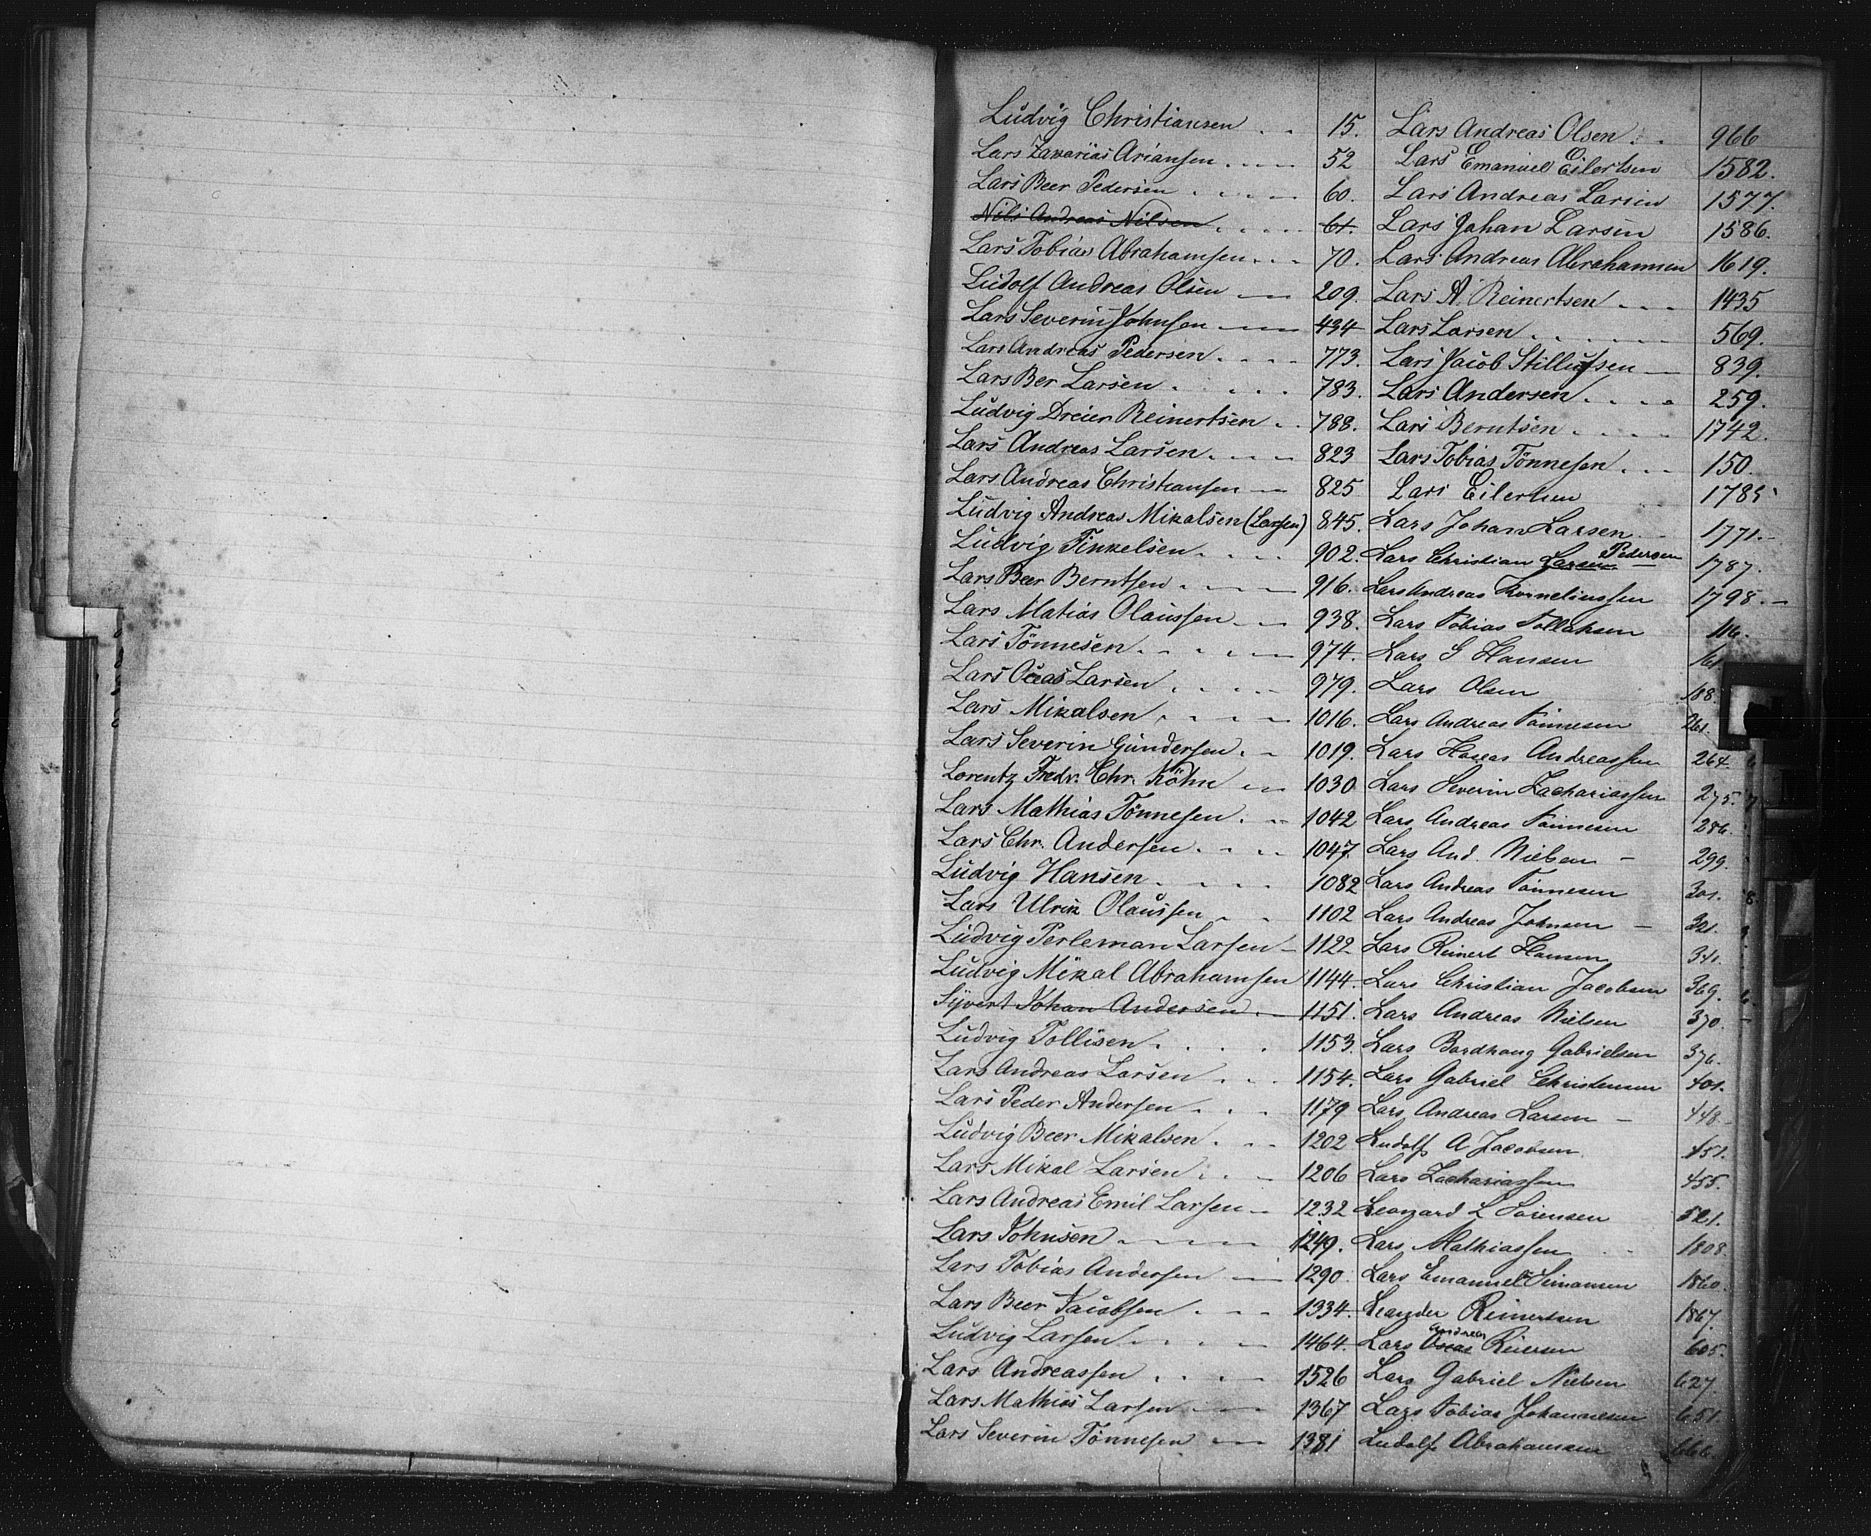 Ludvig Christiansen 15.
Lars Zavarias Ariansen 52
Lars Beer Pedersen 60.
Nils Andreas Nilsen 61.
Lars Tobias Abrahamsen 70.
Ludolf Andreas Olsen 209.
Lars Severin Johnsen 434
Lars Andreas Pedersen 773.
Lars Ber Larsen 783.
Ludvig Dreier Reinertsen 788.
Lars Andreas Larsen 823
Lars Andreas Christiansen 825
Ludvig Andreas Mikalsen (Larsen) 845.
Ludvig Finkelsen 902.
Lars Beer Berntsen 916.
Lars Matias Olaussen 938.
Lars Tönnesen 974.
Lars Oseas Larsen 979.
Lars Mikalsen 1016.
Lars Severin Gundersen 1019.
Lorentz Fredr. Chr. Köhn 1030
Lars Mathias Tönnesen 1042
Lars Chr. Andersen 1047
Ludvig Hansen 1082
Lars Ulrik Olaussen 1102
Ludvig Perleman Larsen 1122
Ludvig Mikal Abrahamsen 1144.
Syvert Johan Andersen 1151.
Ludvig Tollisen 1153.
Lars Andreas Larsen 1154.
Lars Peder Andersen 1179
Ludvig Beer Mikalsen 1202
Lars Mikal Larsen 1206
Lars Andreas Emil Larsen 1232
Lars Johnsen 1249.
Lars Tobias Andersen 1290.
Lars Beer Jacobsen 1334.
Ludvig Larsen 1464.
Lars Andreassen 1526
Lars Mathias Larsen 1367
Lars Severin Tönnesen 1381
Lars Andreas Olsen 966
Lars Emanuel Eilertsen 1582.
Lars Andreas Larsen 1577.
Lars Johan Larsen 1586.
Lars Andreas Abrahamsen 1619.
Lars A. Reinertsen 1435
Lars Larsen 569.
Lars Jacob Stillufsen 839.
Lars Andersen 259.
Lars Berntsen 1742.
Lars Tobias Tönnesen 150.
Lars Eilertsen 1785
Lars Johan Larsen 1771.
Lars Christian Larsen Pedersen 1787.
Lars Andreas Korneliussen 1798.
Lars Tobias Tollaksen 116.
Lars G Hansen 161
Lars Olsen 188.
Lars Andreas Tönnesen 261.
Lars Hoseas Andreassen 264.
Lars Severin Zachariassen 275.
Lars Andreas Tönnesen 286.
Lars And. Nielsen 299.
Lars Andreas Tönnesen 301.
Lars Andreas Johnsen 321.
Lars Reinert Hansen 341.
Lars Christian Jacobsen 369.
Lars Andreas Nielsen 370.
Lars Bordhaug Gabrielsen 376.
Lars Gabriel Christensen 401.
Lars Andreas Larsen 448.
Ludolf A Jacobsen 451.
Lars Zachariassen 455.
Leonard L Sörensen 521.
Lars Mathiassen 1808.
Lars Emanuel Simonsen 1860.
Leander Reinertsen 1867.
Lars Oseas Andreas Reiersen 605.
Lars Gabriel Nielsen 627.
Lars Tobias Johannesen 651.
Ludolf Abrahamsen 666.